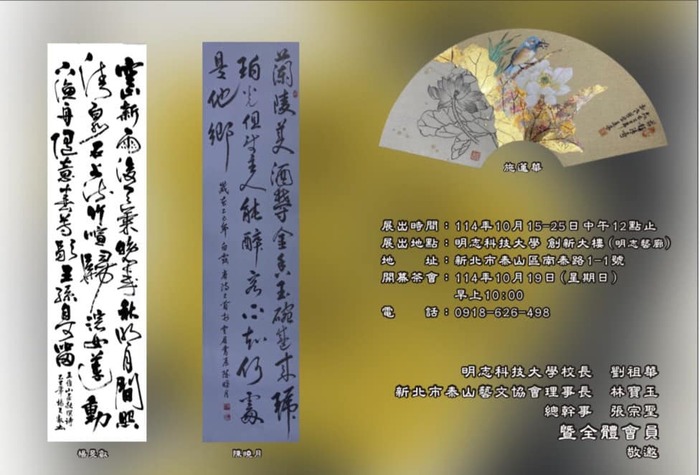 空山新雨後天氣晚來秋明月松間照
清泉石上流竹喧歸浣女蓮動
下漁舟隨意春芳歇王孫自可留
蘭陵美酒鬱金香玉碗盛來琥
珀光但使主人能醉客不知何處
是他鄉
陳曉月
施蓮華
展出時間：114年10月15-25日中午12點止
展出地點：明志科技大學 創新大樓(明志藝廊)
地　　址：新北市泰山區南泰路1-1號
開幕茶會：114年10月19日(星期日)
早上10:00
電　　話：0918-626-498
明志科技大學校長　劉祖華
新北市泰山藝文協會理事長　林寶玉
總幹事　張宗聖
暨全體會員
敬邀